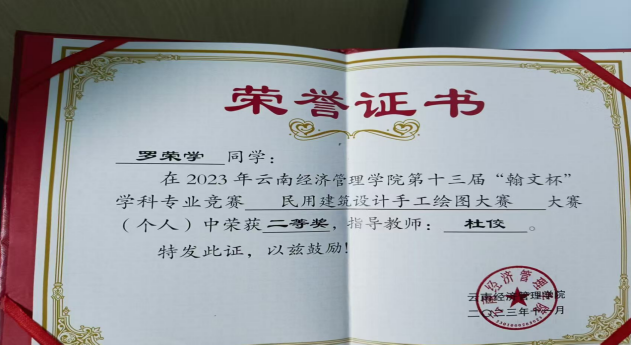 荣誉证书
罗荣学 同学：
在 2023 年云南经济管理学院第十三届“翰文杯”
学科专业竞赛 民用建筑设计手工绘图大赛 大赛
（个人）中荣获 二等奖，指导教师： 杜佼 。
特发此证，以兹鼓励！
云南经济管理学院
二〇二三年十一月